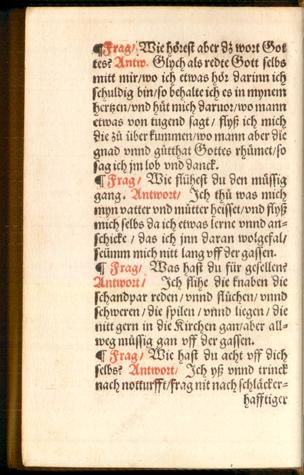 ¶ Frag/ Wie hörest aber dz wort Got
tes? Antw. Glych als redte Gott selbs
mitt mir/wo ich etwas hör darinn ich
schuldig bin/so behalte ich es in mynem
hertzen/vnd hüt mich daruor/wo mann
etwas von tugend sagt/ flyß ich mich
die zů überkummen/wo mann aber die
gnad vnnd gůtthat Gottes rhůmet/so
sag ich jm lob vnd danck.
¶ Frag/ Wie flühest du den müssig
gang. Antwort/ Ich thů was mich
myn vatter vnd můtter heisset/vnd flyß
mich selbs da ich etwas lerne vnnd an-
schicke / das ich jnn daran wolgefal/
seümm mich nitt lang vff der gassen.
¶ Frag/ Was hast du für gesellen?
Antwort/ Ich flihe die knaben die
schandpar reden/ vnnd flůchen/ vnnd
schweren/ die spilen / vnnd liegen / die
nitt gern in die Kirchen gan/aber all-
weg müssig gan vff der gassen.
¶ Frag/ Wie hast du acht vff dich
selbs? Antwort/ Ich yß vnnd trinck
nach notturfft/frag nit nach schläcker-
hafftiger